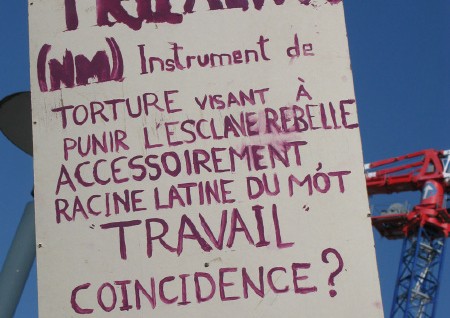 (NM) Instrument de
TORTURE VISANT À
PUNIR L'ESCLAVE REBELLE
ACCESSOIREMENT,
RACINE LATINE DU MÓT
TRAVAIL
COINCIDENCE ?